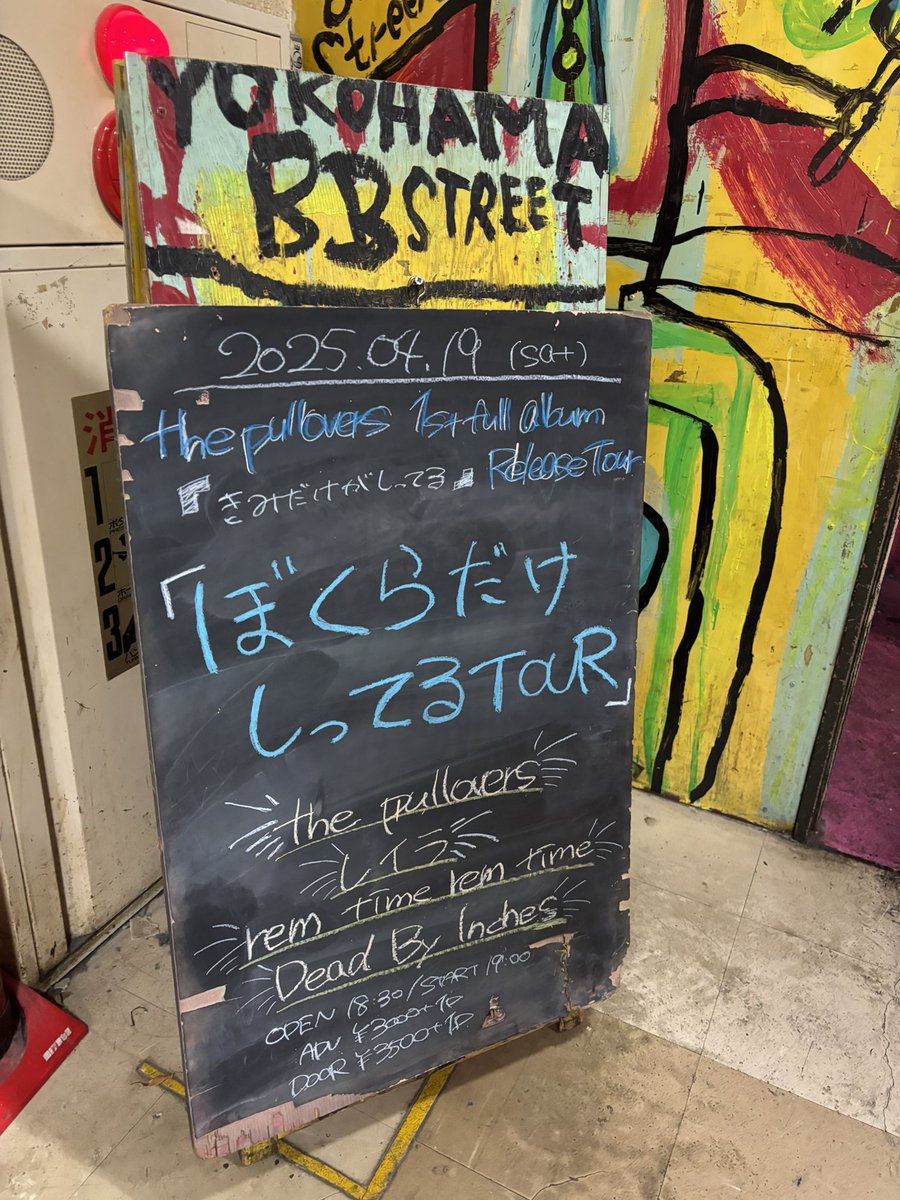 Street
YOKOHAMA
BB STREET
2025.04.19 (sat)
the pullovers 1st full album
『きみだけがしってる』 Release Tour
「ぼくらだけ
しってるTOUR」
the pullovers
レイラ
rem time rem time
Dead By Inches
OPEN 18:30/START 19:00
ADV ¥3000+1D
DOOR ¥3500+1D
消
1
2
3